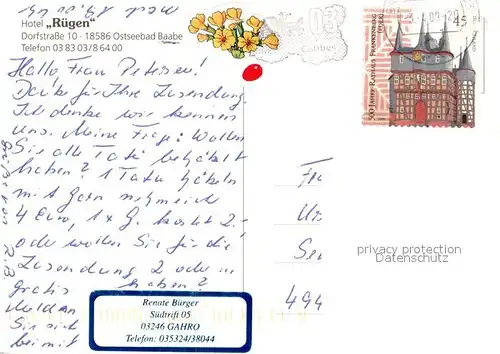 Hotel „Rügen"
Dorfstraße 10 - 18586 Ostseebad Baabe
Telefon 03 83 03/8 64 00
03
45
500 JAHRE RATHAUS FRANKENBERG
Hallo Frau Petersen!
Danke für Ihre Zusendung.
Ich denke wir kennen
uns. Meine Frage: Wollen
Sie alle
haben? 1
mit Garn
4 Euro, 1 x G. kostet 2.-
oder wollen Sie für die
Zusendung 2 oder
gratis haben?
Melden
Sie sich
bei mir
R.B.
Fr
Se
494
privacy protection
Datenschutz
Renate Bürger
Südtrift 05
03246 GAHRO
Telefon: 035324/38044